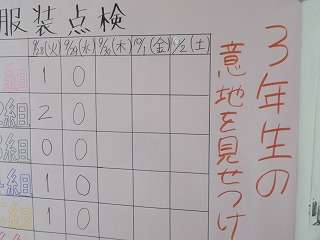 服装点検
9/28(火) 9/29(水) 9/30(木) 10/1(金) 10/2(土)
組 1 0
組 2 0
組 0 0
組 1 0
組 1 0
3年生の
意地を見せつけ